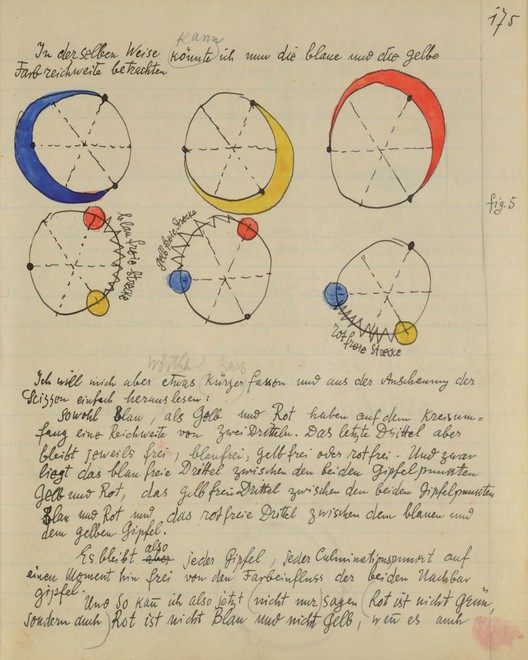 175
kann
In derselben Weise (könnte) ich nun die blaue und die gelbe
Farbreichweite betrachten
fig. 5
blaufreie Strecke
gelbfreie Strecke
rotfreie Strecke
Ich will mich aber etwas kürzer fassen und aus der Anschauung der
Skizzen einfach herauslesen:
Sowohl Blau, als Gelb und Rot haben auf dem Kreisum=
fang eine Reichweite von zwei Dritteln. Das letzte Drittel aber
bleibt jeweils frei, blaufrei, gelbfrei oder rotfrei. Und zwar
liegt das blaufreie Drittel zwischen den beiden Gipfelpunkten
Gelb und Rot, das gelbfreie Drittel zwischen den beiden Gipfelpunkten
Blau und Rot und das rotfreie Drittel zwischen dem blauen und
dem gelben Gipfel.
also
Es bleibt aber jeder Gipfel, jeder Culminationspunkt auf
einen Moment hin frei von den Farbeinfluss der beiden Nachbar
gipfel.
Und so kann ich also jetzt (nicht nur) sagen Rot ist nicht Grün,
sondern auch) Rot ist nicht Blau und nicht Gelb, wenn es auch